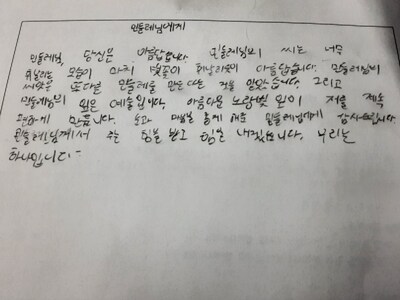 민들레님에게
민들레님, 당신은 아름답습니다. 민들레님의 씨는 너무
휘날리는 모습이 마치 벚꽃이 휘날리듯이 아름답습니다. 민들레님의
씨앗은 또다른 민들레를 만든다는 것을 알았습니다. 그리고
민들레님의 잎은 예술입니다. 아름다운 노랑빛 잎이 저를 계속
편하게 만듭니다. 눈과 마음을 통해 애쓴 민들레님에게 감사드립니다
민들레님께서 주는 힘을 받고 힘을 내겠습니다. 우리는
하나입니다-